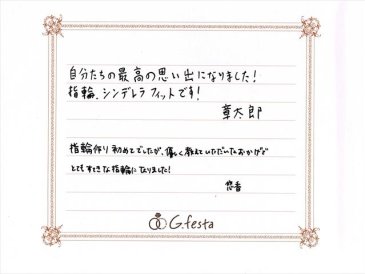 自分たちの最高の思い出になりました！
指輪、シンデレラフィットです！
章太郎
指輪作り初めてでしたが、優しく教えていただいたおかげで
とてもすてきな指輪になりました！
悠香
G.festa